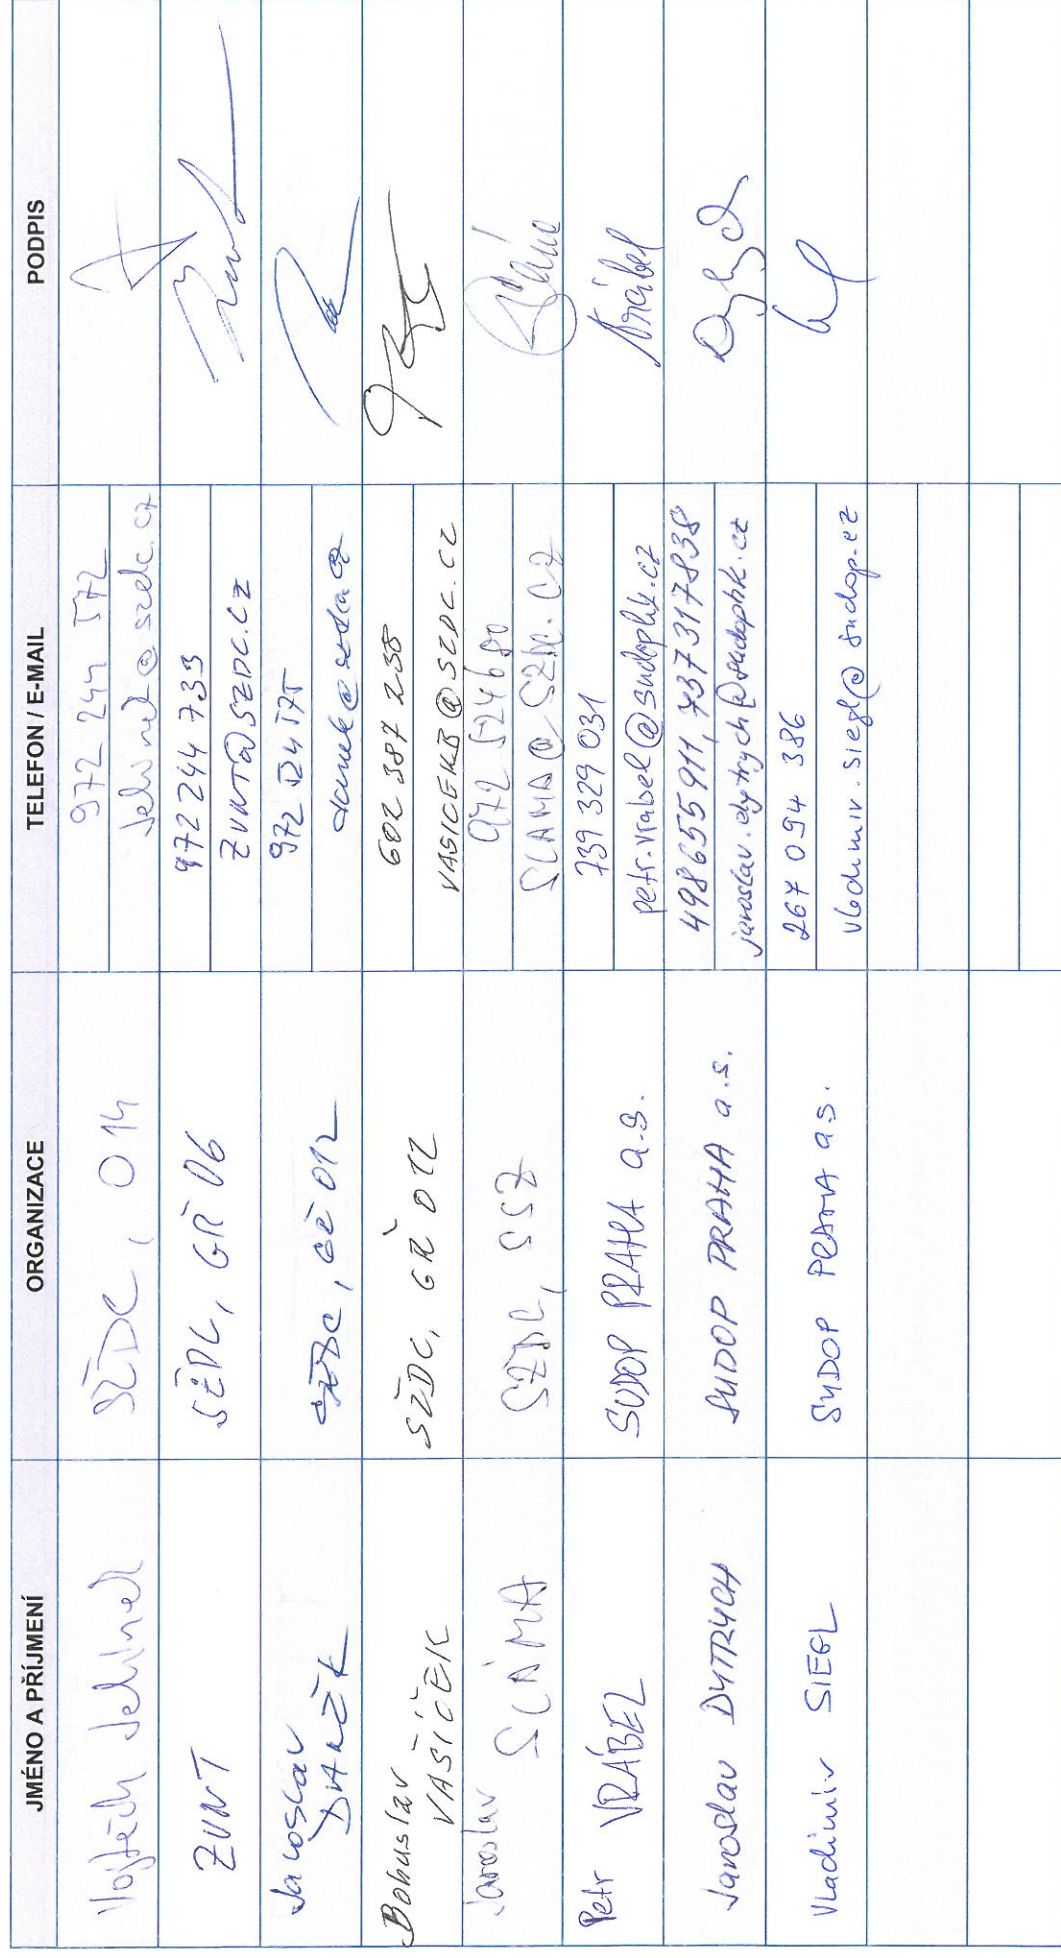 JMÉNO A PŘÍJMENÍ ORGANIZACE TELEFON / E-MAIL PODPIS
Vojtěch SŽDC, O14 972 244 572
@szdc.cz
ZUNT SŽDC, GŘ O6 972 244 733
ZUNT@SZDC.CZ
Jaroslav SŽDC, GŘ O12 972
Bohuslav SŽDC, GŘ O12 602 387 238
VAŠÍČEK VASICEKB@SZDC.CZ
Jaroslav SŽDC, SSZ 972 524 680
SLÁMA SLAMA@SZDC.CZ
Petr VRÁBEL SUDOP PRAHA a.s. 739 329 031 Vrábel
petr.vrabel@sudophk.cz
Jaroslav DYTRYCH SUDOP PRAHA a.s. 498655911, 737317838
jaroslav.dytrych@sudophk.cz
Vladimir SIEGL SUDOP PRAHA a.s. 267 094 386
vladimir.siegl@sudop.cz